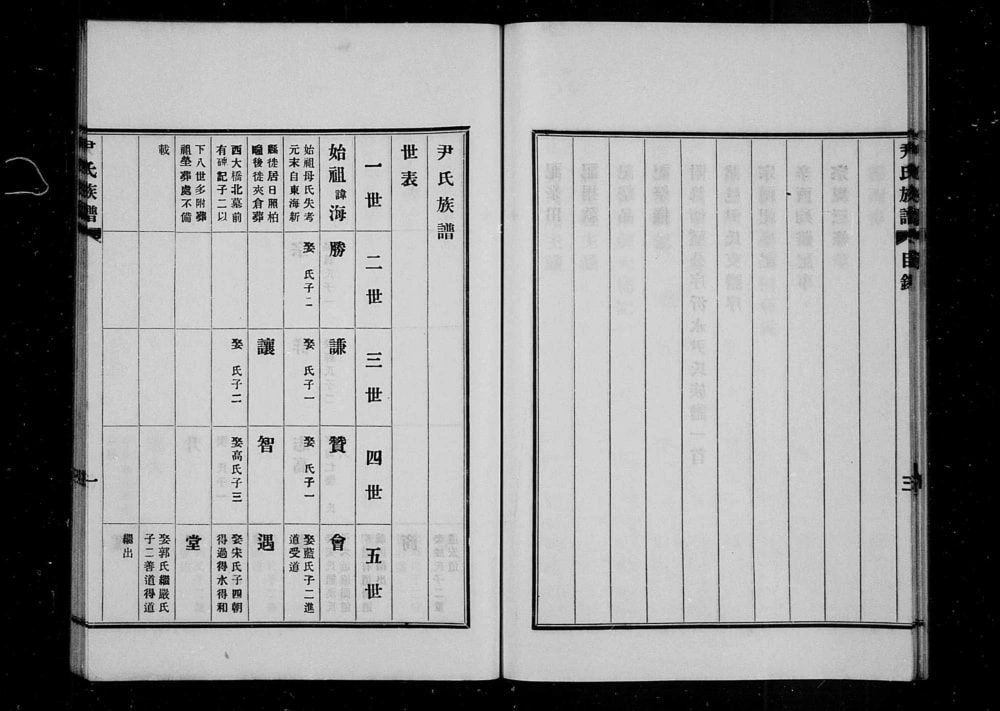 尹氏族譜
目錄
三
尹氏族譜
世表
一世
二世
三世
四世
五世
始祖諱海
始祖母氏失考
元末自東海新
縣徙居日照柏
疃後徙夾倉葬
西大橋北墓前
有碑記子二以
下八世多附葬
祖塋葬處不備
載
勝
娶 氏子二
謙
娶 氏子一
讓
娶 氏子二
贊
娶 氏子一
智
娶高氏子三
會
娶藍氏子二進
道受道
遇
娶宋氏子四朝
得過得水得和
堂
娶郭氏繼嚴氏
子二善道得道
繼出
尹氏族譜
一